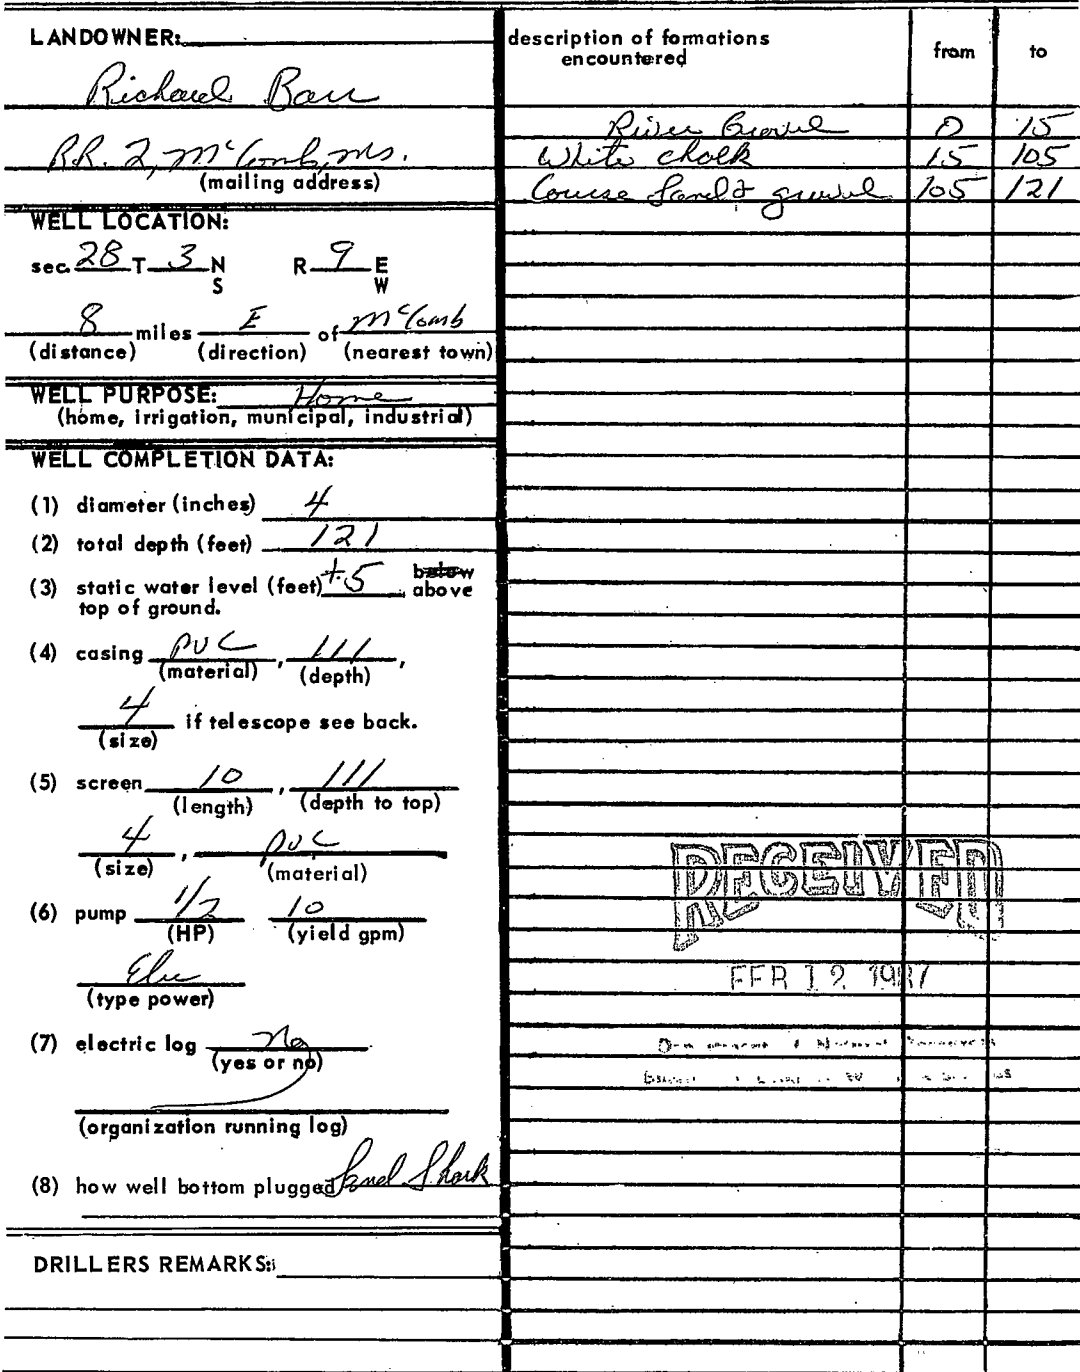 LANDOWNER:
Richard Barr
RR. 2, McComb, Ms.
(mailing address)
WELL LOCATION:
sec. 28 T 3 N R 9 E
S W
8 miles E of McComb
(distance) (direction) (nearest town)
WELL PURPOSE: Home
(home, irrigation, municipal, industrial)
WELL COMPLETION DATA:
(1) diameter (inches) 4
(2) total depth (feet) 121
(3) static water level (feet) +5 below
above
top of ground.
(4) casing PVC, 111,
(material) (depth)
4 if telescope see back.
(size)
(5) screen 10, 111
(length) (depth to top)
4, PVC
(size) (material)
(6) pump 1/2 10
(HP) (yield gpm)
Elec
(type power)
(7) electric log No
(yes or no)
(organization running log)
(8) how well bottom plugged Sand Shark
DRILLERS REMARKS:
description of formations
encountered
from to
River Gravel 0 15
White chalk 15 105
Course Sand & gravel 105 121
RECEIVED
FEB 12 1987